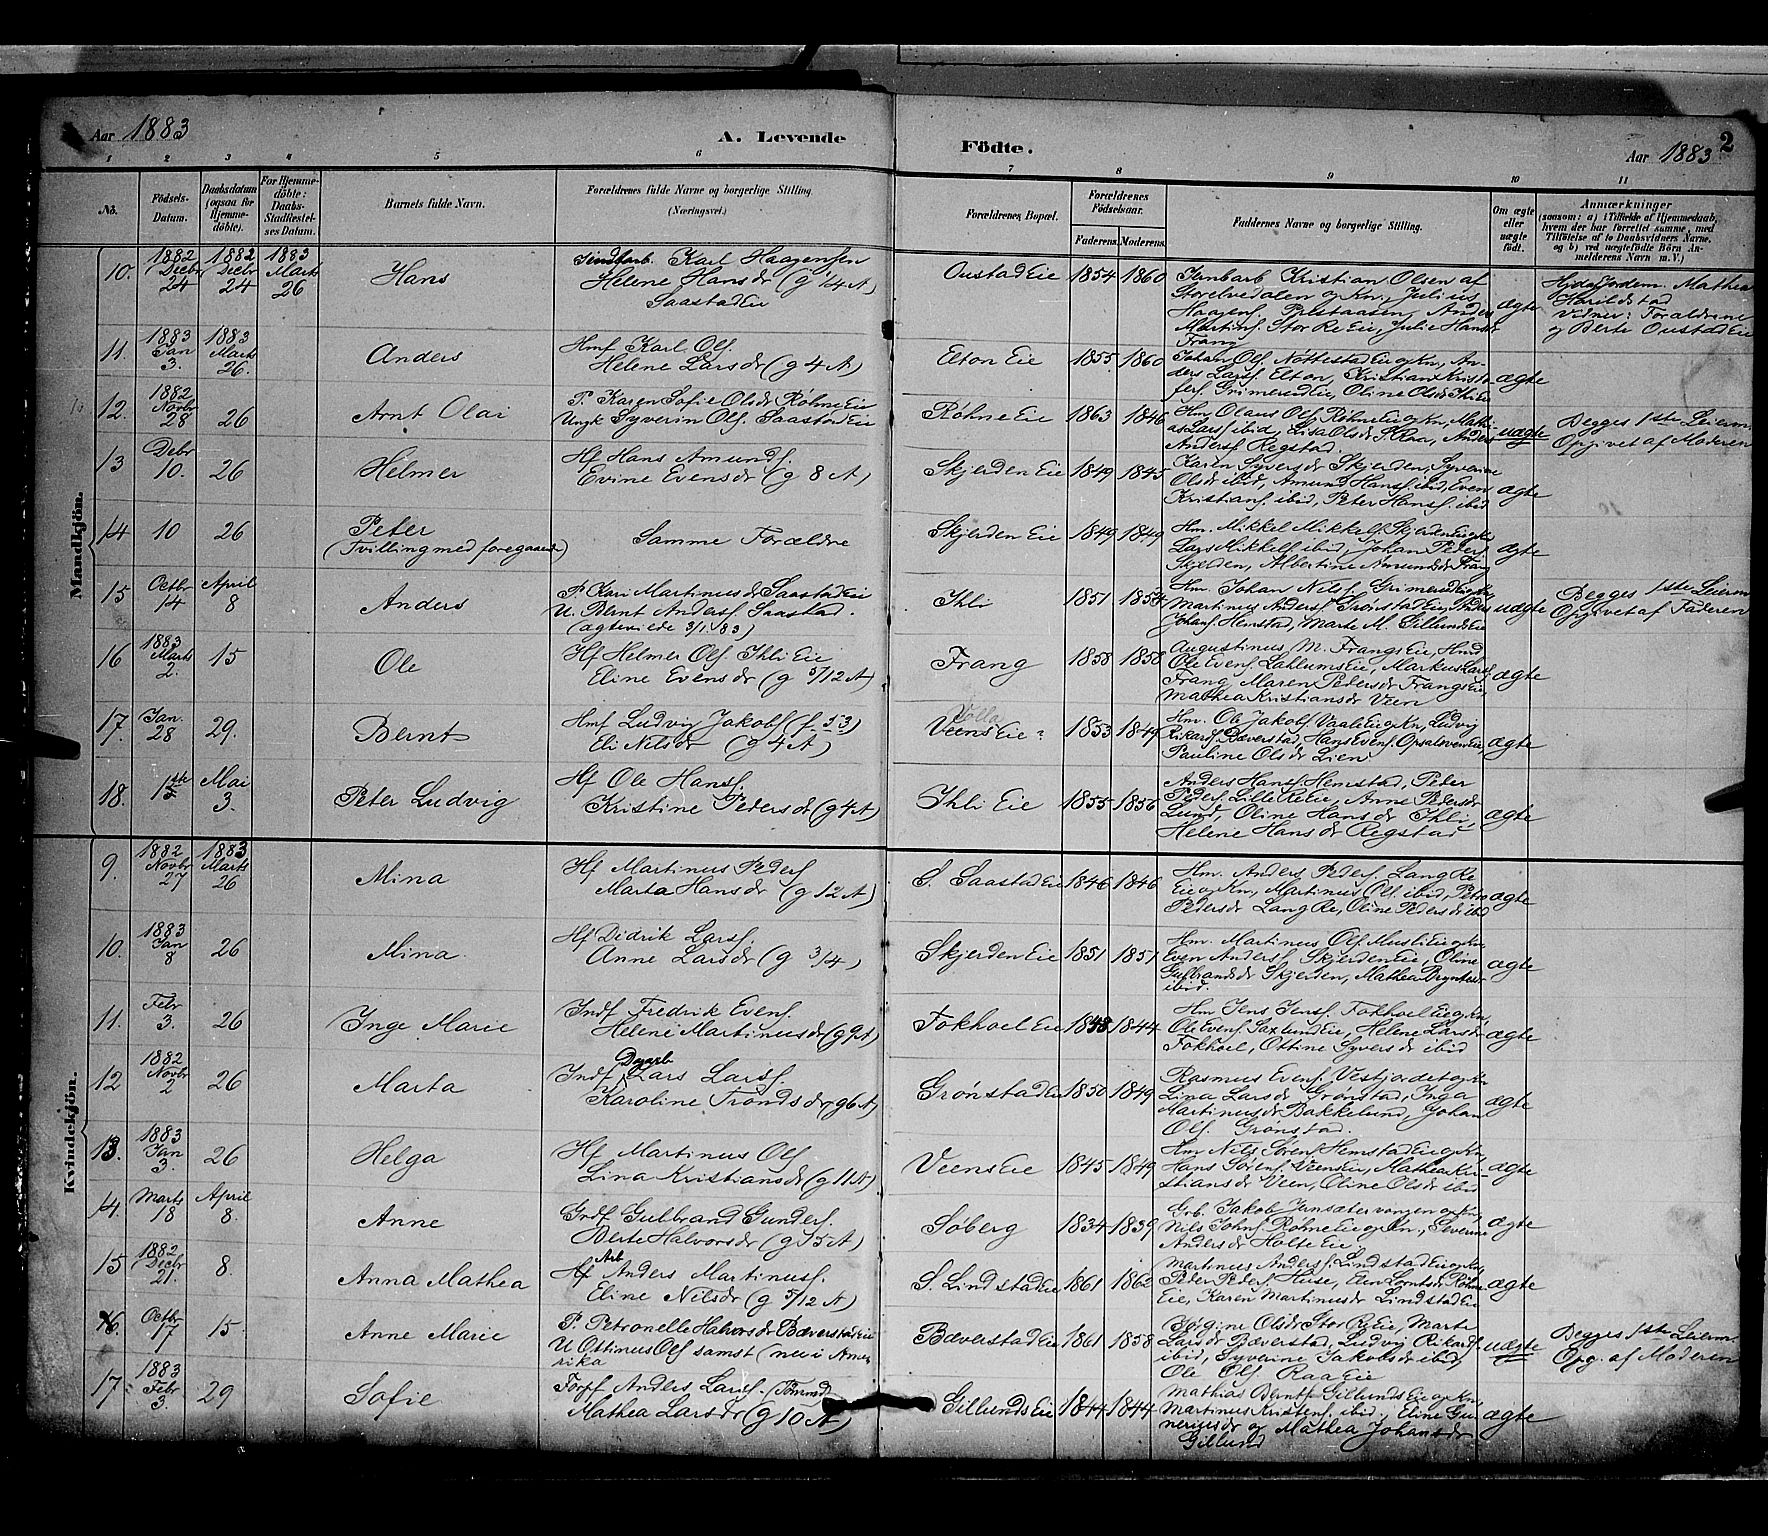 Aar 1883
A. Levende
Födte.
Aar 1883
2
1 2 3 4 5 6 7 8 9 10 11
No.
Födsels-Datum.
Daabsdatum (ogsaa for Hjemme-döbte).
For Hjemme-döbte: Daabs-Stadfæstel-ses Datum.
Barnets fulde Navn.
Forældrenes fulde Navne og borgerlige Stilling (Næringsvei.)
Forældrenes Bopæl.
Forældrenes Födselsaar.
Faderens.
Moderens.
Faddernes Navne og borgerlige Stilling.
Om ægte eller uægte födt.
Anmærkninger
(saasom: a) i Tilfælde af Hjemmedaab, hvem der har forrettet samme, med Tilföielse af to Daabsvidners Navne, og b) ved uægtefödte Börn Anmelderens Navn m. V.)
Mandkjön.
10. 1882 Decbr 24 1882 Decbr 24 1883 Marts 26 Hans
Karl Haagensen
Helene Hansdr (g 1/4 A)
Saastad Eie
Oustad Eie 1854 1860
Jernbarb Kristian Olsen af
Storelvedalen og Kn, Julius
Haagens. Præstaasen, Anders
Martins. Stor Re Eie, Julie Hansdr
Frang
ægte
Hjdø Jordem. Mathea
Harildstad
Vidner: Forældrene
og Berte Oustad Eie
11. 1883 Jan 3. 1883 Marts 26. Anders
Hmf Karl Ols.
Helene Larsdr (g 4 A)
Elton Eie 1855. 1860
Johan Ols. Nøttestad Eie og Kn, An-
ders Lars. Elton, Kristian Kristo-
fers. Grimerud Eie, Oline Olsdr
ægte
12. 1882 Novbr 28 26 Arnt Olai
P. Karen Sofie Olsdr Røhne Eie
Ungk Syverin Ols. Saastad Eie
Røhne Eie 1863 1846
Hm. Olaus Ols. Røhne Eie og Kn, Mathi-
as Lars. ibid, Lisa Olsdr S. Raa, Anders
Anders. Regstad.
uægte
Begges 1ste Leierm.
Opgivet af Moderen
13 Debr 10. 26 Helmer
Hf Hans Amunds.
Evine Evensdr (g 8 A)
Skjerden Eie 1849 1845
Karen Syversdr Skjerden, Syverine
Olsdr ibid, Amund Hans. ibid, Even
Kristians. ibid, Peter Hans. ibid
ægte
14 10 26 Peter
(Tvilling med foregaaende)
Samme Forældre
Skjerden Eie 1849 1849
Hm. Mikkel Mikkels. Skjerden Eie og Kn,
Lars Mikkels. ibid, Johan Peders.
Skjerden, Albertine Amundsdr Frang
ægte
15 Octbr 14 April 8 Anders
P. Kari Martinusdr Saastad Eie
U. Bernt Anders. Saastad.
(ægteviede 3/1. 83)
Ihli 1851 1854
Hm. Johan Nils. Grimerud Eie og Kn,
Martinus Anders. Grønstad Eie, Anders
Johans. Hemstad, Marte M. Gillunds Eie
uægte
Begges 1ste Leierm.
Opgivet af Faderen
16 1883 Marts 2. 15 Ole
Hf Helmer Ols. Ihli Eie
Eline Evensdr (g 5/12 A)
Frang 1858 1858
Augustinus M. Frangs Eie, Hmd
Ole Evens. Lahlums Eie, Markus Lars.
Frang, Maren Pedersdr Frangs Eie
Mathea Kristiansdr Veen
ægte
17. Jan. 28 29. Bernt
Hmf Ludvig Jakobs. (f. 53)
Eli Nilsdr (g 4 A)
Volla
Veens Eie? 1853 1849
Hm. Ole Jakobs. Vaale Eie og Kn, Ludvig
Rikards. Bæverstad, Hans Evens. Opsalsveen Eie
Pauline Olsdr Lien
ægte
18. 15de Mai 3. Peter Ludvig
Hf Ole Hans.
Kristine Pedersdr (g 4 A)
Ihli Eie 1855 1856
Anders Hans. Hemstad, Peder
Peders. Lille Re Eie, Anne Pedersdr
Lund, Oline Hansdr Ihli,
Helene Hansdr Regstad
ægte
Kvindekjön.
9. 1882 Novbr 27 1883 Marts 26 Mina
Hf Martinus Peders.
Marta Hansdr (g 12 A)
S. Saastad Eie 1846 1846
Hm. Anders Peders. Lang Re
Eie og Kn, Martinus Ols. ibid, Petra
Pedersdr Lang Re, Oline Pedersdr ibid
ægte
10. 1883 Jan 8 26 Mina.
Hf Didrik Lars.
Anne Larsdr (g 3/4)
Skjerden Eie 1851 1851
Hm. Martinus Ols. Musli Eie og Kn,
Even Anders. Skjerden Eie, Oline
Gulbrandsdr Skjerden, Mathea Bryntesdr
ibid.
ægte
11. Febr 3. 26 Inge Marie
Indf Fredrik Evens.
Helene Martinusdr (g 9 A)
Fokhoel Eie 1843 1844
Hm Jens Jens. Fokhoel Eie og Kn,
Ole Evens. Saxlund Eie, Helene Larsdr
Fokhoel, Ottine Syversdr ibid
ægte
12 1882 Novbr 2 26 Marta
Dagarb
Indf Lars Lars.
Karoline Trondsdr (g 6 A)
Grønstad Eie 1850 1849
Rasmus Evens. Vestjordet og Kn
Lina Larsdr Grønstad, Inga
Martinusdr Bakkelund, Johan
Ols. Grønstad.
ægte
13. 1883 Jan 3. 26 Helga
Hf Martinus Ols.
Lina Kristiansdr (g 11 A)
Veens Eie 1845 1849
Hm Nils Søren. Hemstad Eie og Kn,
Hans Sørens. Veens Eie, Mathea Kri-
stiansdr Veen, Oline Olsdr ibid
ægte
14. Marts 18 April 8. Anne
Grdf Gulbrand Gunders.
Berte Halvorsdr (g 15 A)
Søberg 1834 1839
Grb. Jakob Jensætervangen og Kn,
Nils Johns. Røhne Eie og Kn, Severine
Andersdr Holte Eie.
ægte
15 1882 Decbr 21. 8. Anna Mathea
Arb
Hf Anders Martinus.
Eline Nilsdr (g 5/12 A)
S. Lindstad Eie 1861 1862
Martinus Anders. Lindstad Eie og Kn,
Peder Peders. Huse, Elen Lorntsdr Røhne
Eie, Karen Martinusdr Lindstad Eie
ægte
16. Octbr 17 15. Anne Marie
P. Petronelle Halvorsdr Bæverstad Eie
U Ottinus Ols samst (nu i Ame-
rika
Bæverstad Eie 1861 1858
Olsdr Stor Re Eie, Marte
Larsdr Bæverstad, Ludvig Rikards.
ibid, Syverine Jakobsdr ibid,
Ole Ols. Raa Eie
uægte
Begges 1ste Leierm.
Opg. af Moderen
17. 1883 Febr 3. 29 Sofie
Torpf Anders Lars.
Mathea Larsdr (g 10 A)
Gillunds Eie 1844 1844
Mathias Bernts. Gillunds Eie og Kn,
Martinus Kristens. ibid, Eline Gu-
neriusdr og Mathea Johansdr
Gillund
ægte